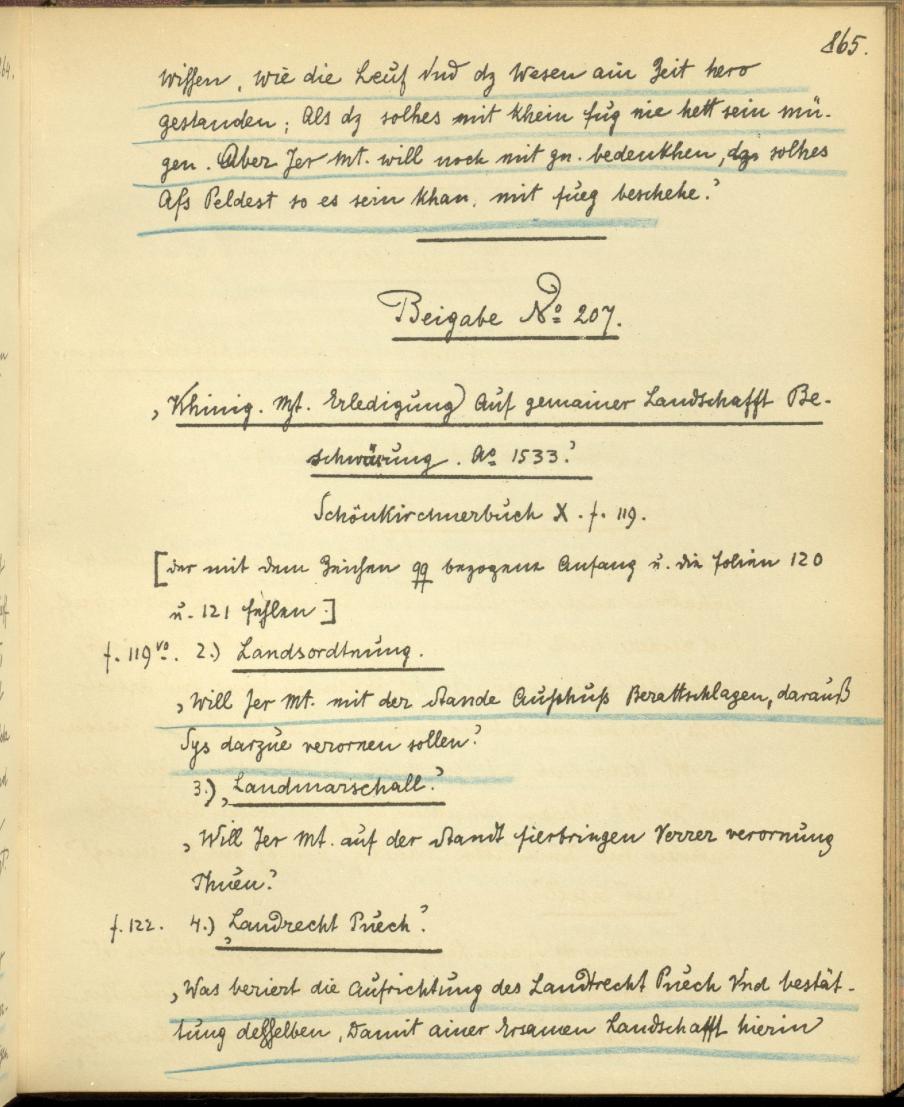 865.
wissen, wie die Leuf vnd dz Wesen ain Zeit hero
gestanden; Als dz solhes mit khein fug nie hett sein mü-
gen. Aber Jer Mt. will noch mit gn. bedenkhen, dz solhes
Afs Peldest so es sein khan, mit fueg beschehe.'
Beigabe No 207.
'Khinig. Mt. Erledigung) Auf gemainer Landschafft Be-
schwärung. Ao 1533.'
Schönkirchnerbuch X. f. 119.
[der mit dem Zeichen qq bezogene Anfang u. die folien 120
u. 121 fehlen.]
f. 119 vo. 2.) Landsordtnung.
'Will Jer Mt. mit der Stande Aufshuß Berattschlagen, darauß
Sys darzue verornen sollen.'
3.) 'Landmarschall.'
'Will Jer Mt. auf der Standt fierbringen Verrer verornung
Thuen.'
f. 122. 4.) 'Landrecht Puech.'
'Was beriert die Aufrichtung des Landtrecht Puech Vnd bestät-
tung desselben, Damit ainer Ersamen Landschafft hierin